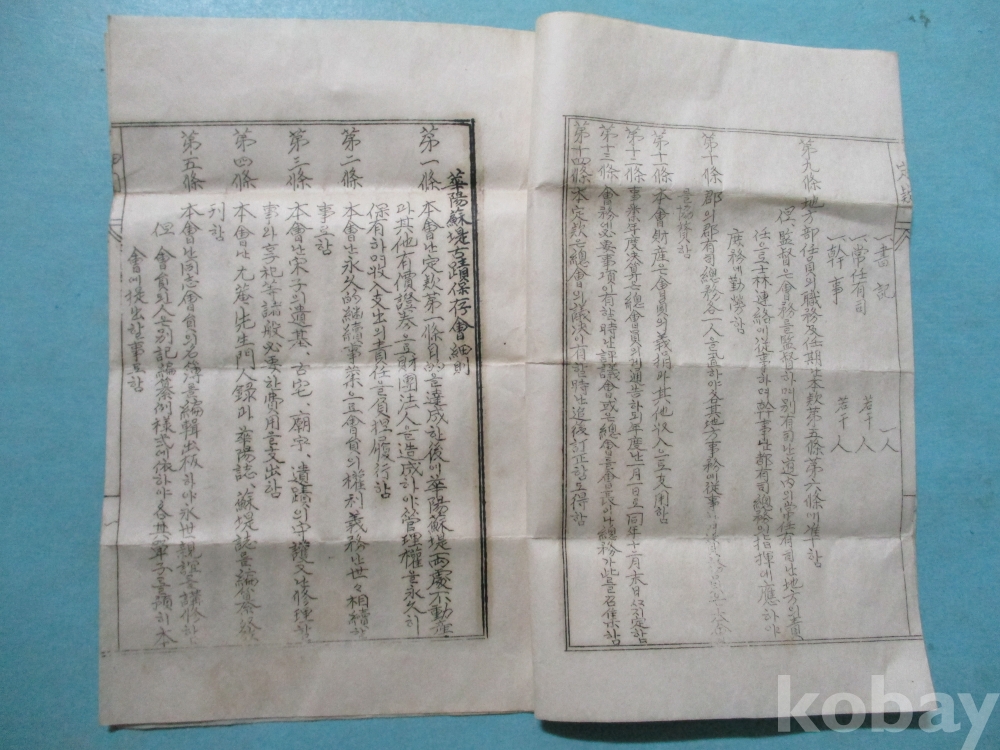 一書記 一人
一常任有司 若干人
一幹事 若干人
第九條 地方部任員의職務及任期는本款第五條第六條에準함
但、監督은會務를監督하며別有司는道內의常任有司는地方의責
任으로士林連絡에從事하며幹事는都有司總務의指揮에應하야
庶務에勤勞함
第十條 郡의郡有司總務各一人을置하야各其地方事務에從事
을協議함
第十一條 本會財産은會員의義捐과其他收入으로支用함
第十二條 事業年度決算은總會員의게通告하되年度는一月一日로同年十二月末日
第十三條 會務의必要事項이有할時는評議會或은總會를 總務가此를召集함
第十四條 本定款은總會의議決이有할時는追後訂正함도得함
華陽蘇堤古蹟保存會細則
第一條 本會는定款第一條目的을達成한後에華陽蘇堤兩處不動産
과其他有價證券으로財團法人을造成하야管理權을永久히
保有하며收入支出의責任을負担履行함
第二條 本會는永久的繼續事業으로會員의權利義務는世々相續할
事로함
第三條 本會는宋子의遺基、古宅、廟宇、遺蹟의守護又는修理함
事와享祀等諸般必要한費用을支出함
第四條 本會는尤菴先生門人錄과華陽誌、蘇堤誌를編纂發
刊함
第五條 本會는同志會員의名簿를編輯出板하야永世親誼를講修하
但 會員의 는別記編纂例樣式에依하야各其單子를 本
會에提出할事로함